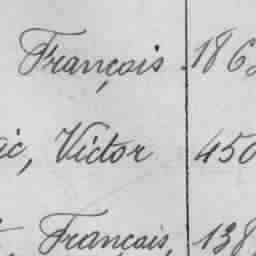 François 186
ic, Victor 450
François, 138